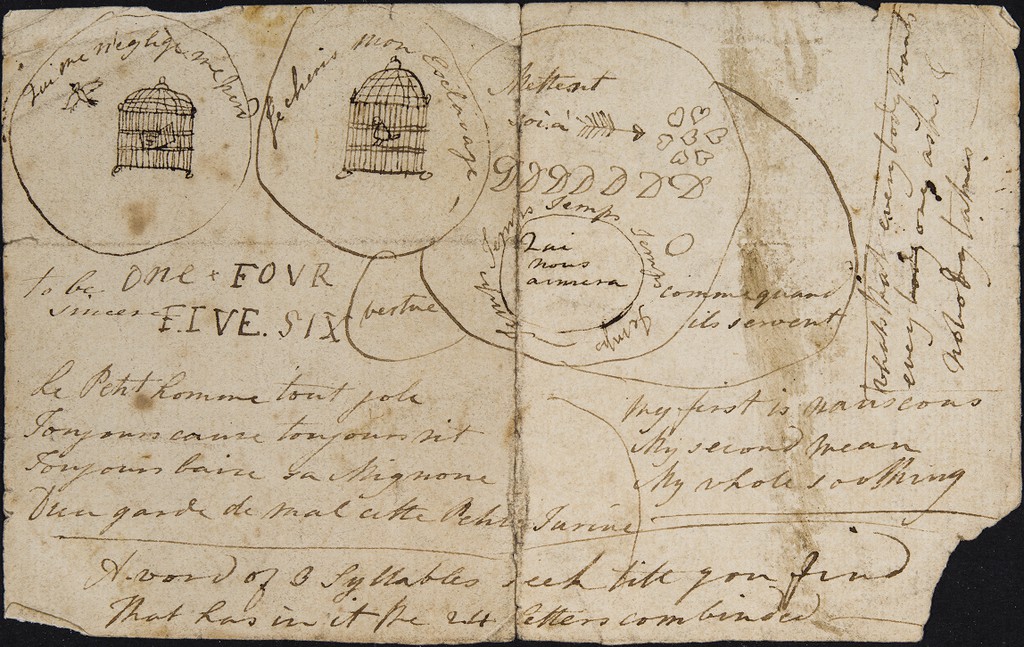 Qui me neglige me perd
Je cheris mon esclavage
Mettent
D D D D D D D
Temps Temps Temps
Qui
nous
aimera
comme quand
ils servent
vertue
to be ONE + FOUR
sincere FIVE. SIX
Le Petit homme tout joli
Toujours cause toujours rit
Toujours baise sa Mignone
Dieu garde de mal cette Petite
My first is nauseous
My second mean
My whole soothing
Whats that every body wants
every body asks &
nobody takes
A word of 3 Syllables seek till you find
That has in it the 24 letters combined